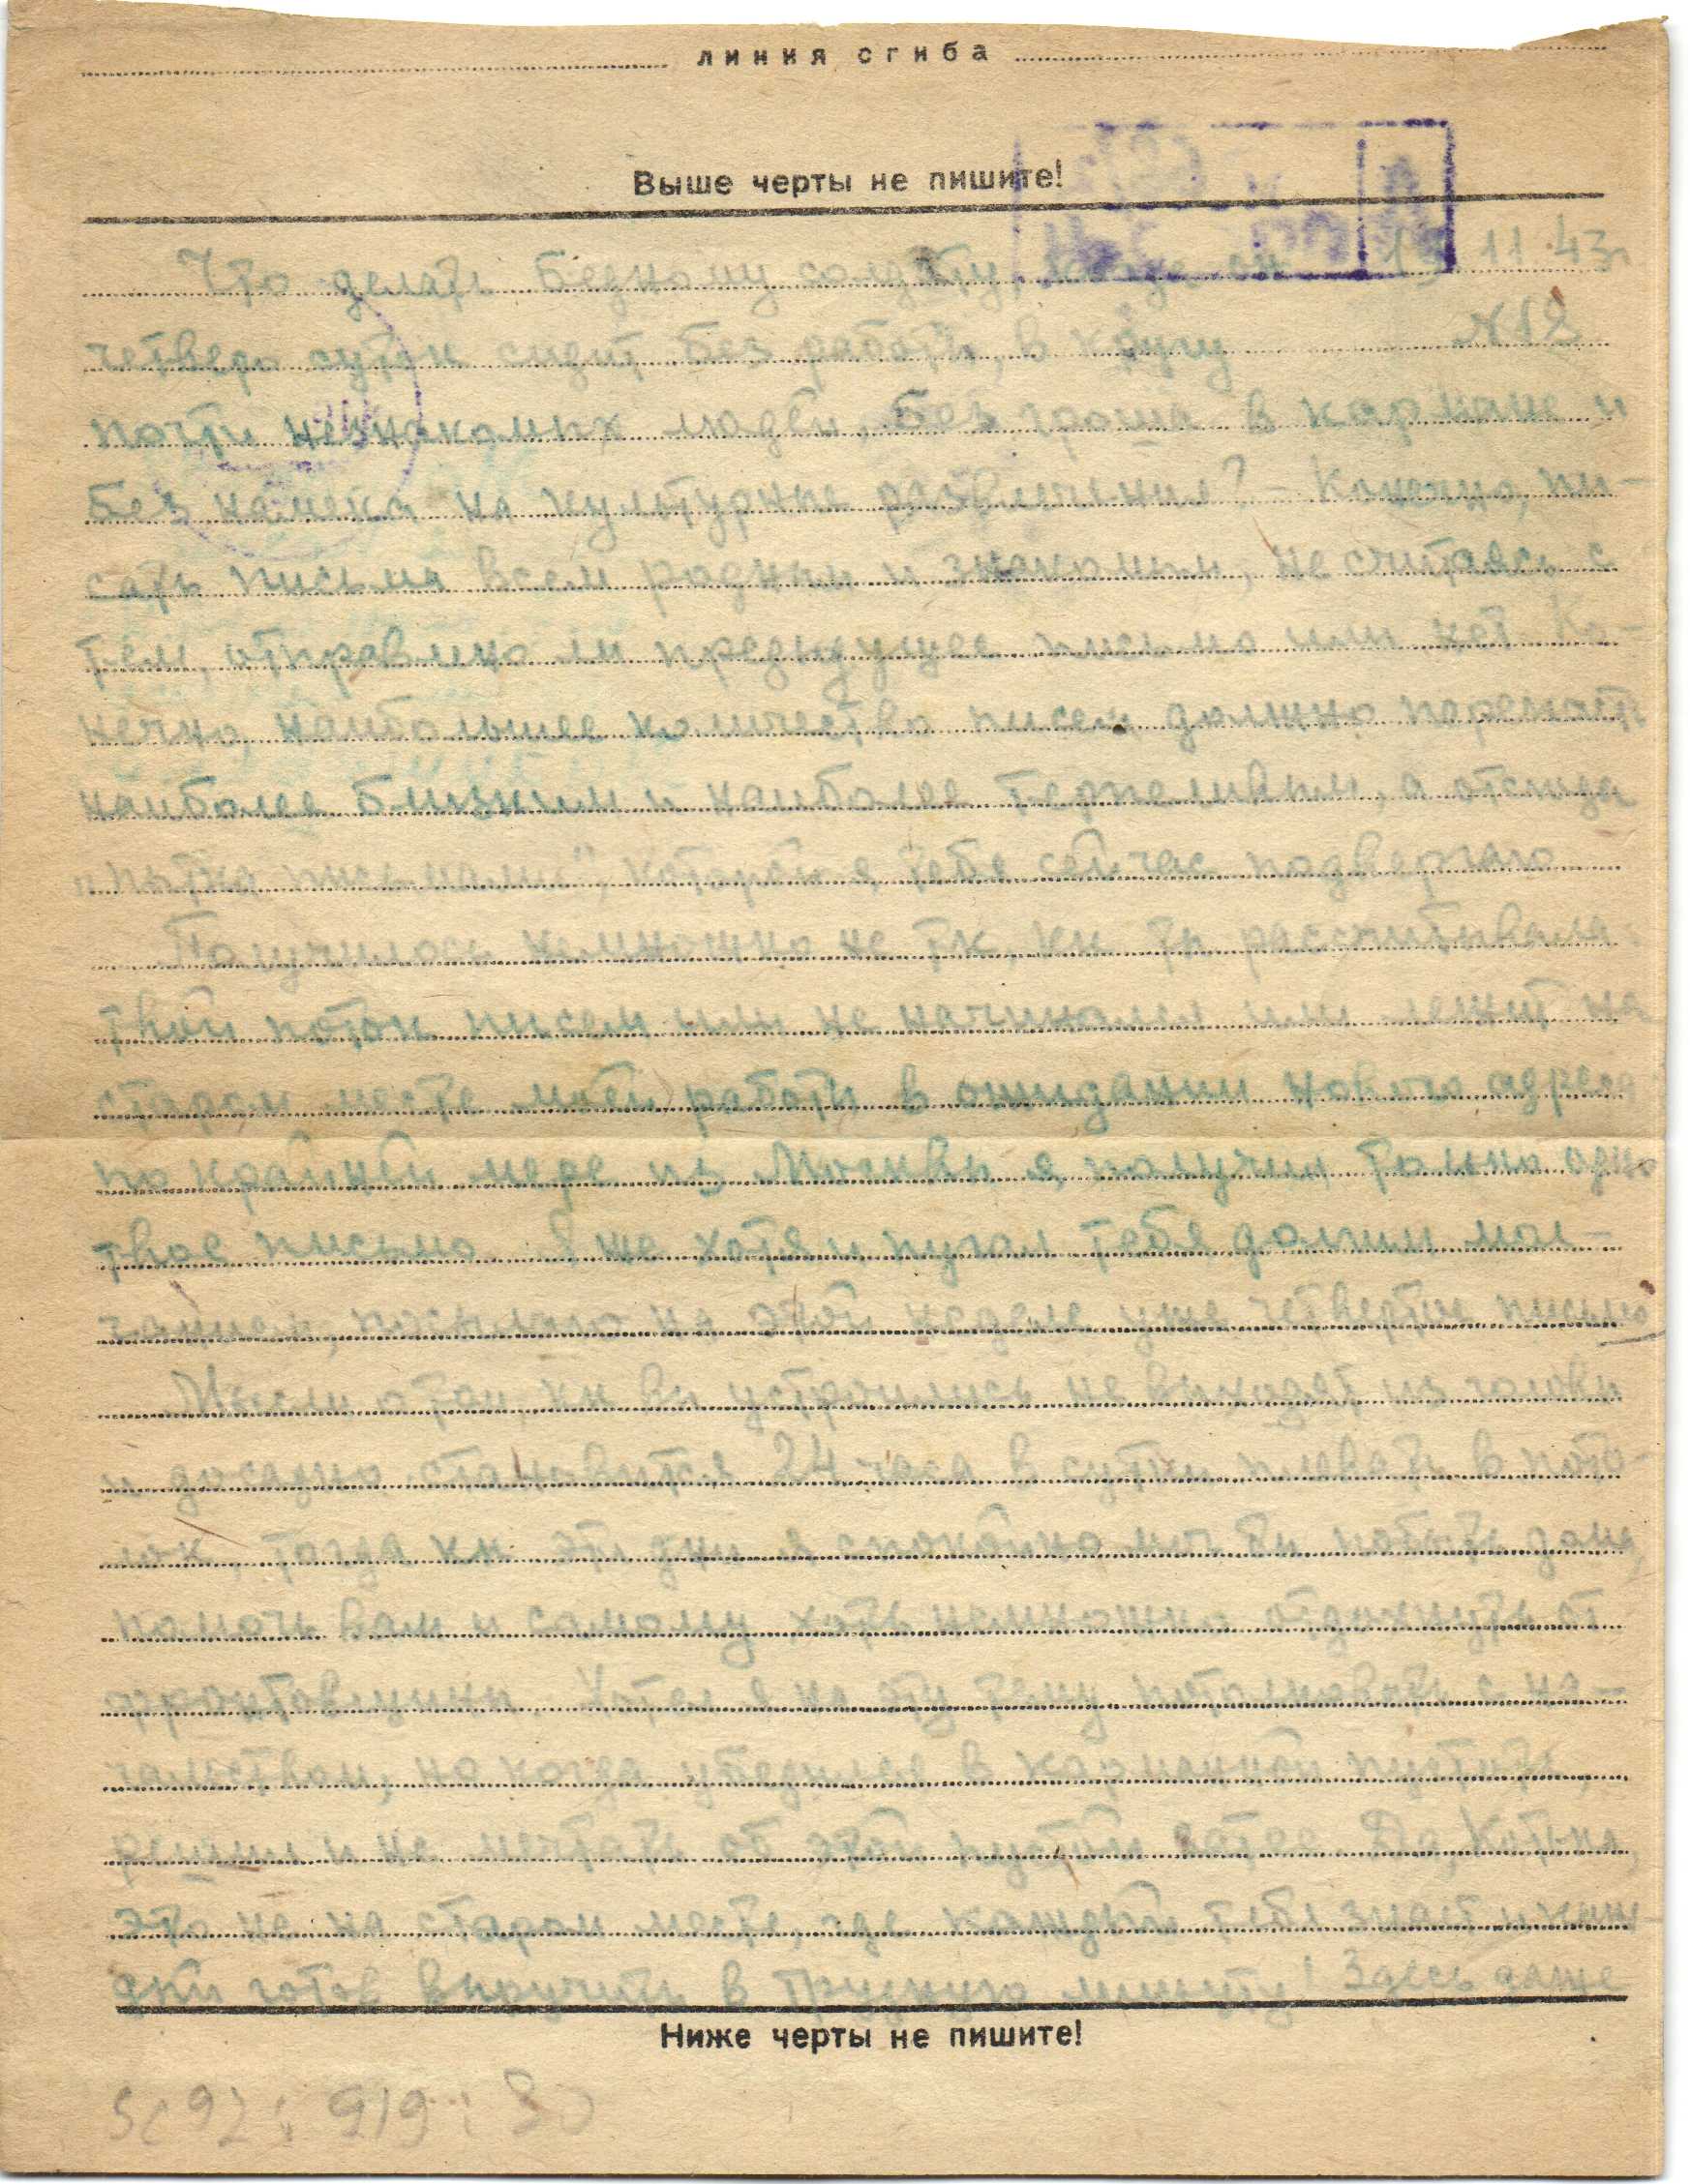 линия сгиба
Выше черты не пишите!
Что делать бедному солдату, когда он 13 11.43г
четверо суток сидит без работы, в кругу №12
почти незнакомых людей, без гроша в кармане и
без намека на культурные развлечения? – Конечно, пи-
сать письма всем родным и знакомым, не считаясь с
тем, отправлено ли предыдущее письмо или нет. Ко-
нечно, наибольшее количество писем должно перепасть
наиболее близким и наиболее терпеливым, а отсюда
"пытка письмами", которой я тебя сейчас подвергаю.
Получилось немножко не так, как ты рассчитывала.
твой поток писем или не начинался или лежит на
старом месте моей работы в ожидании нового адреса
по крайней мере из Москвы я получил только одно
твое письмо. Я же хотел пугал тебя долгим мол-
чанием, посылаю на этой неделе уже четвертое письмо
Мысли о том, как вы устроились не выходят из головы
и досадно становится 24 часа в сутки плевать в пото-
лок, тогда как эти дни я спокойно мог бы побыть дома,
помочь вам и самому хоть немножко отдохнуть от
Хотел я на эту тему с на-
чальством, но когда убедился в карманной пустоте,
решил и не мечтать об этой затее. Да, Котька,
это не на старом месте, где каждый тебя знает и каж-
дый готов выручить в трудную минуту! Здесь даже
Ниже черты не пишите!